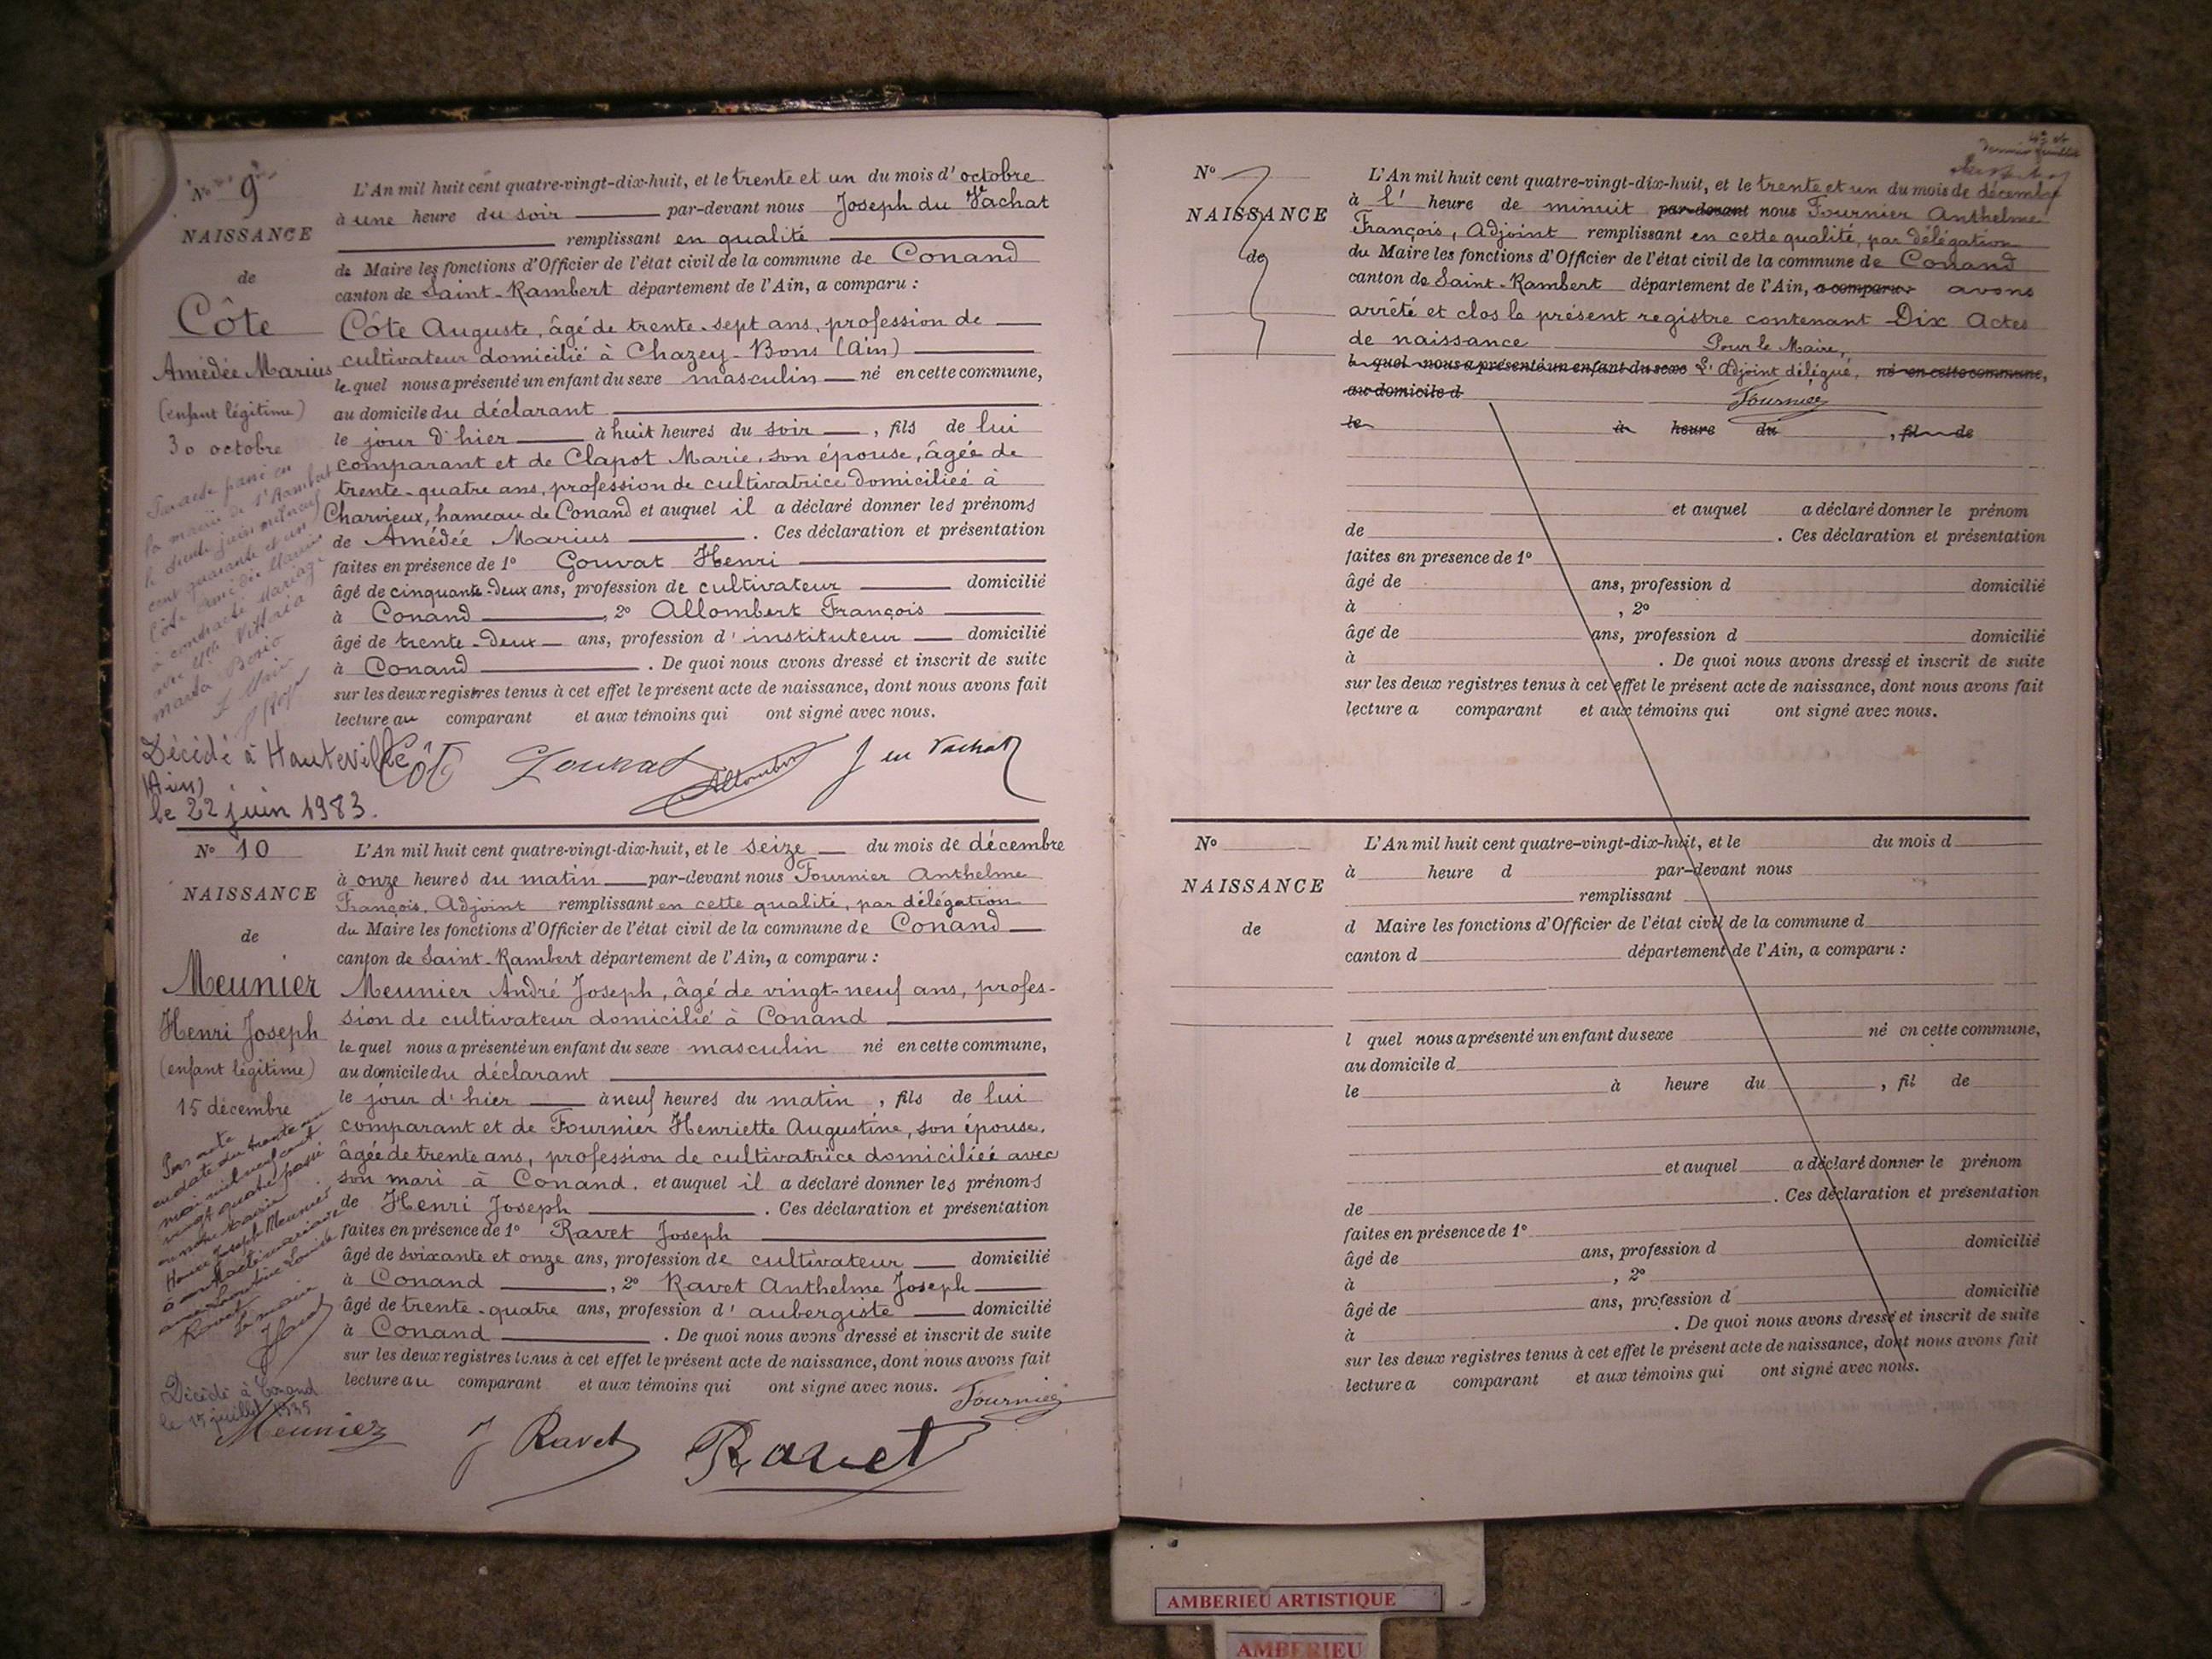 N° 9
NAISSANCE
de
Côte
Amédée Marius
(enfant légitime)
30 octobre
la mairie de St Rambert
le trente juin mil neuf
cent quarante et un
Côte Amédée Marius
a contracté mariage
avec Vittoria
Maria
Décédé à Hauteville
(Ain)
le 22 juin 1983.
L'An mil huit cent quatre-vingt-dix-huit, et le trente et un du mois d'octobre
à une heure du soir par-devant nous Joseph du Vachat
remplissant en qualité
de Maire les fonctions d'Officier de l'état civil de la commune de Conand
canton de Saint-Rambert département de l'Ain, a comparu :
Côte Auguste, âgé de trente-sept ans, profession de
cultivateur domicilié à Chazey-Bons (Ain)
lequel nous a présenté un enfant du sexe masculin né en cette commune,
au domicile du déclarant
le jour d'hier à huit heures du soir, fils de lui
comparant et de Clapot Marie, son épouse, âgée de
trente-quatre ans, profession de cultivatrice domiciliée à
Charvieux, hameau de Conand et auquel il a déclaré donner les prénoms
de Amédée Marius. Ces déclaration et présentation
faites en présence de 1° Gouvat Henri
âgé de cinquante-deux ans, profession de cultivateur domicilié
à Conand, 2° Allombert François
âgé de trente-deux ans, profession d'instituteur domicilié
à Conand. De quoi nous avons dressé et inscrit de suite
sur les deux registres tenus à cet effet le présent acte de naissance, dont nous avons fait
lecture au comparant et aux témoins qui ont signé avec nous.
Côte Gouvat Allombert J du Vachat
N° 10
NAISSANCE
de
Meunier
Henri Joseph
(enfant légitime)
15 décembre
Par acte
en date du trente
mai mil neuf cent
vingt quatre passé
en notre mairie
Henri Joseph Meunier
a contracté mariage
avec Louise
Ravet
Le maire
Décédé à Conand
le 15 juillet 1935
L'An mil huit cent quatre-vingt-dix-huit, et le seize du mois de décembre
à onze heures du matin par-devant nous Fournier Anthelme
François, Adjoint remplissant en cette qualité, par délégation
du Maire les fonctions d'Officier de l'état civil de la commune de Conand
canton de Saint-Rambert département de l'Ain, a comparu :
Meunier André Joseph, âgé de vingt-neuf ans, profes-
sion de cultivateur domicilié à Conand
lequel nous a présenté un enfant du sexe masculin né en cette commune,
au domicile du déclarant
le jour d'hier à neuf heures du matin, fils de lui
comparant et de Fournier Henriette Augustine, son épouse,
âgée de trente ans, profession de cultivatrice domiciliée avec
son mari à Conand. et auquel il a déclaré donner les prénoms
de Henri Joseph. Ces déclaration et présentation
faites en présence de 1° Ravet Joseph
âgé de soixante et onze ans, profession de cultivateur domicilié
à Conand, 2° Ravet Anthelme Joseph
âgé de trente-quatre ans, profession d'aubergiste domicilié
à Conand. De quoi nous avons dressé et inscrit de suite
sur les deux registres tenus à cet effet le présent acte de naissance, dont nous avons fait
lecture au comparant et aux témoins qui ont signé avec nous. Fournier
Meunier J Ravet Ravet
4e et
dernier feuillet
N°
NAISSANCE
de
L'An mil huit cent quatre-vingt-dix-huit, et le trente et un du mois de décembre
à l'heure de minuit par-devant nous Fournier Anthelme
François, Adjoint remplissant en cette qualité, par délégation
du Maire les fonctions d'Officier de l'état civil de la commune de Conand
canton de Saint-Rambert département de l'Ain, a comparu avons
arrêté et clos le présent registre contenant Dix Actes
de naissance Pour le Maire,
l quel nous a présenté un enfant du sexe L'Adjoint délégué, né en cette commune,
au domicile d Fournier
le à heure du , fil de
et auquel a déclaré donner le prénom
de . Ces déclaration et présentation
faites en présence de 1°
âgé de ans, profession d domicilié
à , 2°
âgé de ans, profession d domicilié
à . De quoi nous avons dressé et inscrit de suite
sur les deux registres tenus à cet effet le présent acte de naissance, dont nous avons fait
lecture a comparant et aux témoins qui ont signé avec nous.
N°
NAISSANCE
de
L'An mil huit cent quatre-vingt-dix-huit, et le du mois d
à heure d par-devant nous
remplissant
d Maire les fonctions d'Officier de l'état civil de la commune d
canton d département de l'Ain, a comparu :
l quel nous a présenté un enfant du sexe né en cette commune,
au domicile d
le à heure du , fil de
et auquel a déclaré donner le prénom
de . Ces déclaration et présentation
faites en présence de 1°
âgé de ans, profession d domicilié
à , 2°
âgé de ans, profession d domicilié
à . De quoi nous avons dressé et inscrit de suite
sur les deux registres tenus à cet effet le présent acte de naissance, dont nous avons fait
lecture a comparant et aux témoins qui ont signé avec nous.
AMBERIEU ARTISTIQUE
AMBERIEU